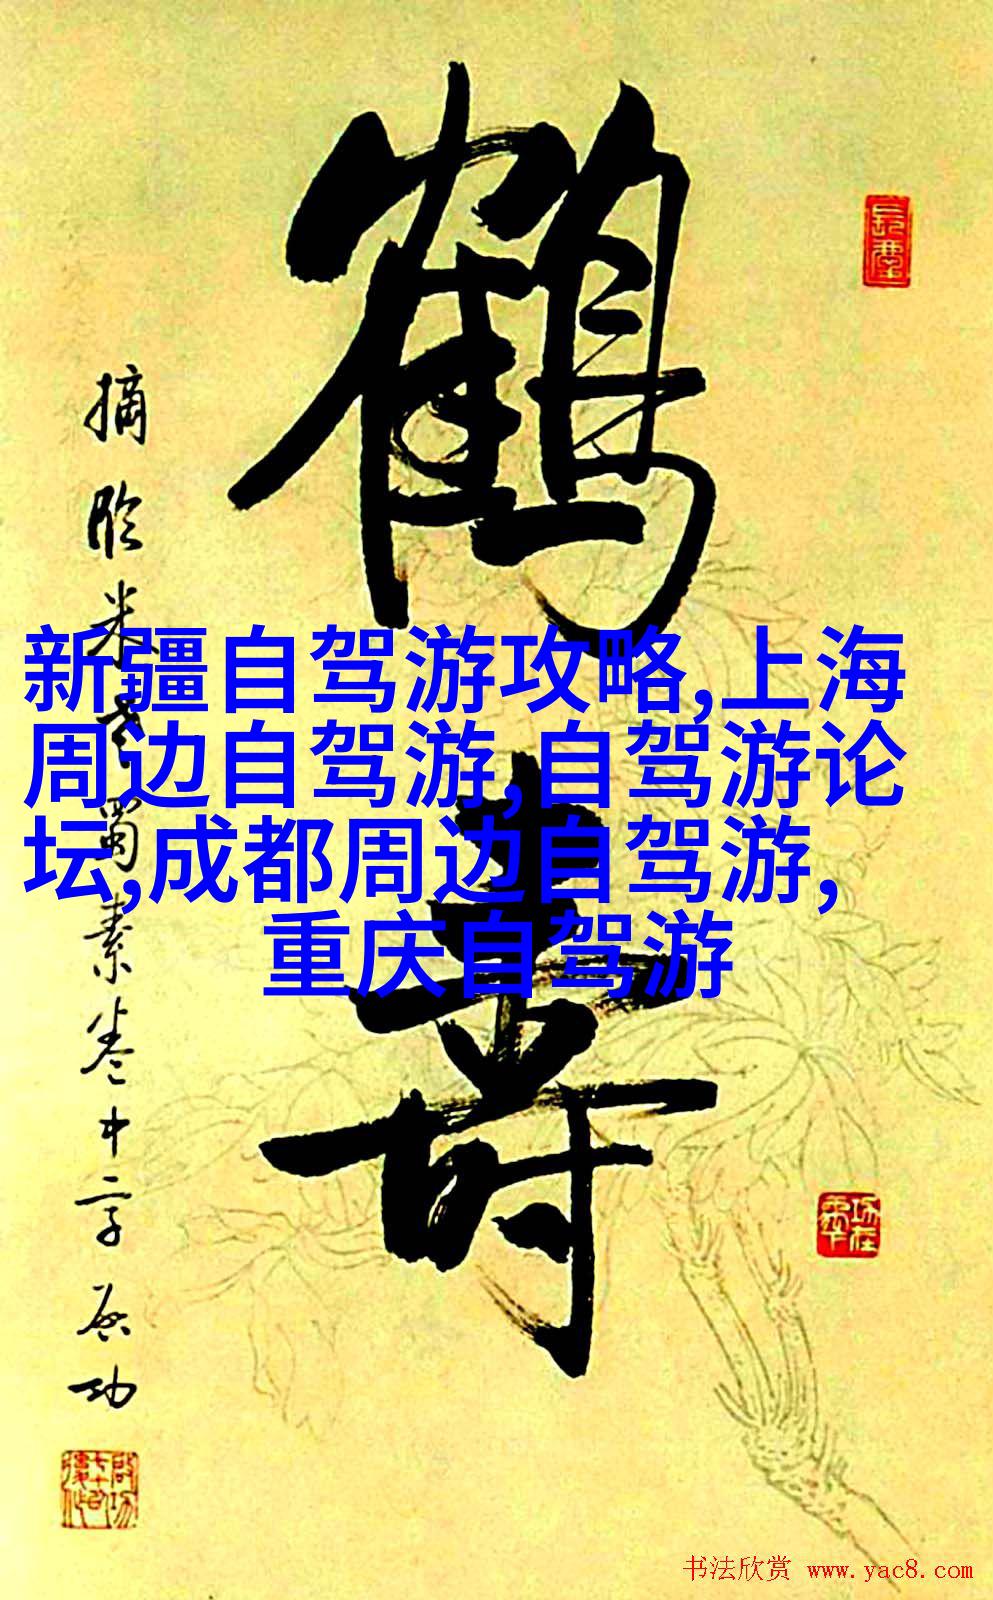 鹤寿
摘临米书蜀素卷中字 启功
新疆自驾游攻略,上海
周边自驾游,自驾游论
坛,成都周边自驾游,
重庆自驾游
书法欣赏 www.yac8.com